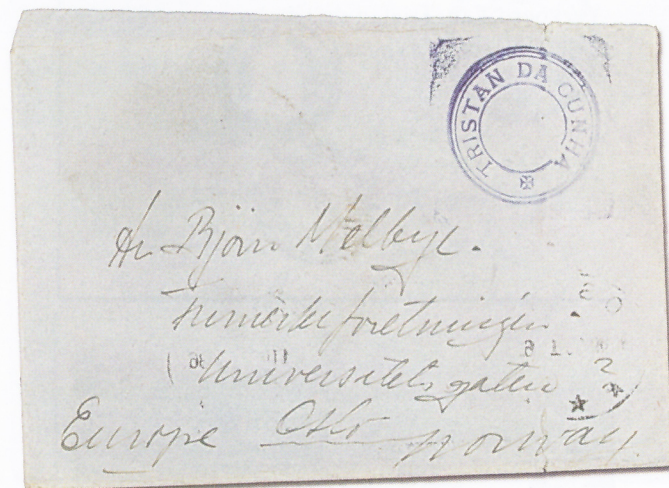 TRISTAN DA CUNHA
Hr Björn Melbye.
Frimerkeforretningen
Universitetsgaten
Europe Oslo Norway